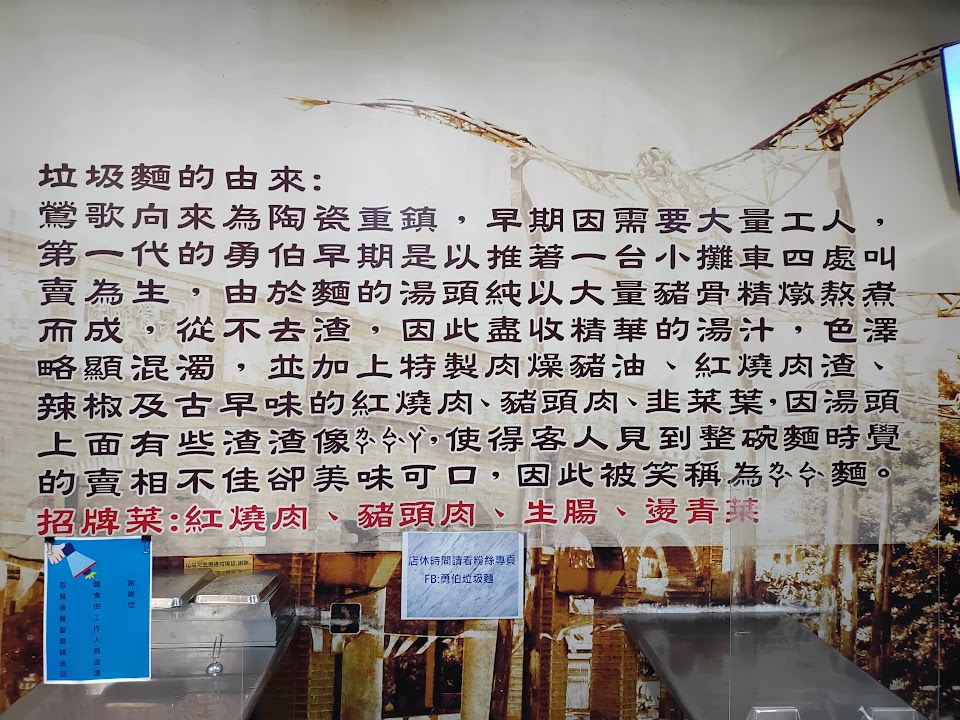 垃圾麵的由來:
鶯歌向來為陶瓷重鎮，早期因需要大量工人，
第一代的勇伯早期是以推著一台小攤車四處叫
賣為生，由於麵的湯頭純以大量豬骨精燉熬煮
而成，從不去渣，因此盡收精華的湯汁，色澤
略顯混濁，並加上特製肉燥豬油、紅燒肉渣、
辣椒及古早味的紅燒肉、豬頭肉、韭菜葉，因湯頭
上面有些渣渣像ㄆㄣㄚˊ，使得客人見到整碗麵時覺
的賣相不佳卻美味可口，因此被笑稱為ㄆㄣ麵。
招牌菜:紅燒肉、豬頭肉、生腸、燙青菜
店休時間請看粉絲專頁
FB:勇伯垃圾麵
謝謝您
餐食由工作人員送達
取餐後餐盤煩請送回